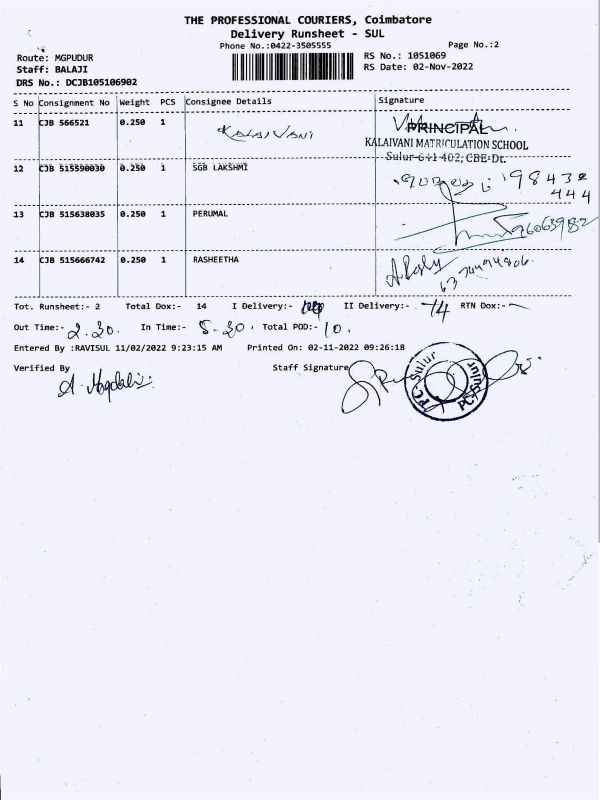 THE PROFESSIONAL COURIERS, Coimbatore
Delivery Runsheet - SUL
Phone No.:0422-3505555 Page No.:2
Route: MGPUDUR RS No.: 1051069
Staff: BALAJI RS Date: 02-Nov-2022
DRS No.: DCJB105106902
S No Consignment No Weight PCS Consignee Details Signature
11 CJB 566521 0.250 1 KALAIVANI PRINCIPAL
KALAIVANI MATRICULATION SCHOOL
Sulur-641 402, CBE-Dt.
12 CJB 515590030 0.250 1 SGB LAKSHMI
98432
444
13 CJB 515638035 0.250 1 PERUMAL
14 CJB 515666742 0.250 1 RASHEETHA
Tot. Runsheet:- 2 Total Dox:- 14 I Delivery:- II Delivery:- 14 RTN Dox:-
Out Time:- 2.30. In Time:- 5-30, Total POD:- 10.
Entered By :RAVISUL 11/02/2022 9:23:15 AM Printed On: 02-11-2022 09:26:18
Verified By Staff Signature
PC-Sulur